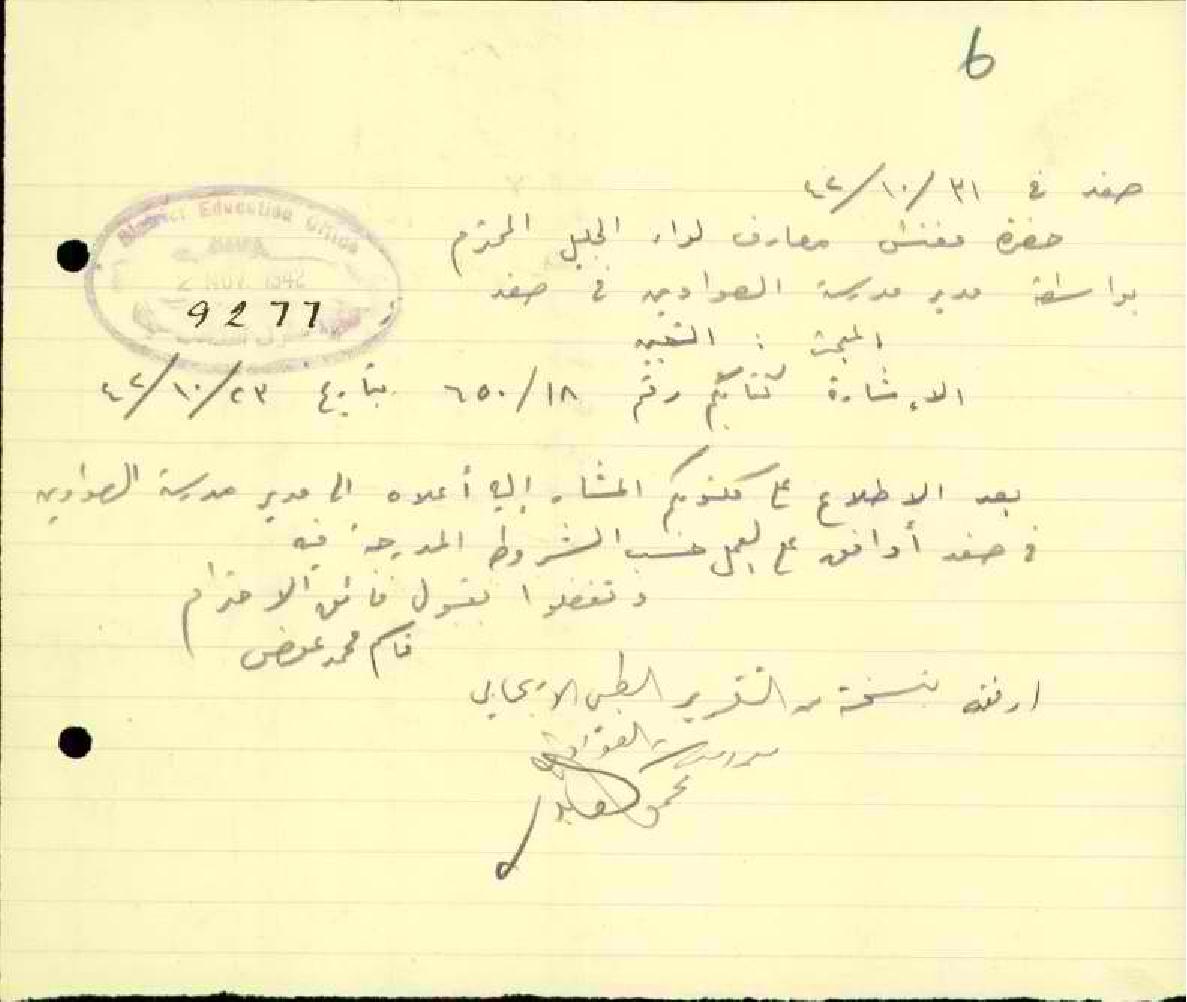 6
صفد في ٣١/١٠/٤٢
حضرة مفتش معارف لواء الجليل المحترم
District Education Office
2 NOV 1942
9277
بواسطة مدير مدرسة الصوادين في صفد
المبحث : التعيين
الاشارة كتابكم رقم ٦٥٠/١٨ بتاريخ ٤٢/١٠/٢٣
بعد الاطلاع على مكتوبكم المشار إليه أعلاه الى مدير مدرسة الصوادين
في صفد أوافق على العمل حسب الشروط المدرجة فيه
وتفضلوا بقبول فائق الاحترام
قاسم محمد عوض
ارفقه بنسخة من التقرير الطبي الايجابي
محمود